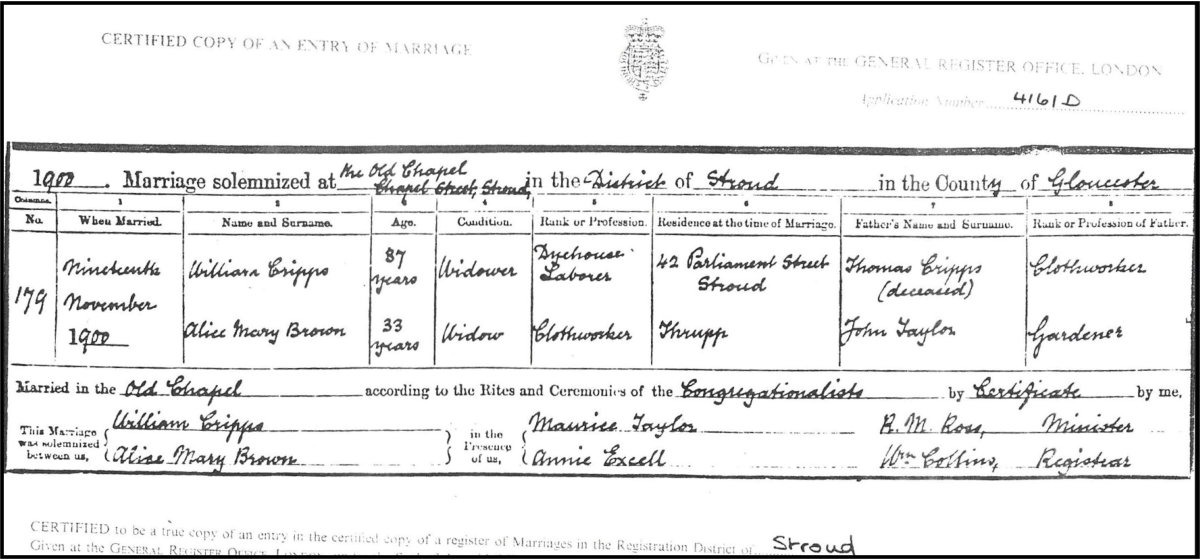 CERTIFIED COPY OF AN ENTRY OF MARRIAGE
GIVEN AT THE GENERAL REGISTER OFFICE, LONDON
Application Number 4161D
1900. Marriage solemnized at the Old Chapel Chapel Street, Stroud, in the District of Stroud in the County of Gloucester
Columns. 1 2 3 4 5 6 7 8
No. When Married. Name and Surname. Age. Condition. Rank or Profession. Residence at the time of Marriage. Father's Name and Surname. Rank or Profession of Father.
179 Nineteenth November 1900
William Cripps 37 years Widower Dyehouse Laborer 42 Parliament Street Stroud Thomas Cripps (deceased) Clothworker
Alice Mary Brown 33 years Widow Clothworker Thrupp John Taylor Gardener
Married in the Old Chapel according to the Rites and Ceremonies of the Congregationalists by Certificate by me,
This Marriage was solemnized between us, William Cripps Alice Mary Brown
in the Presence of us, Maurice Taylor Annie Excell
R. M. Ross, Minister
Wm Collins, Registrar
CERTIFIED to be a true copy of an entry in the certified copy of a register of Marriages in the Registration District of Stroud
Given at the GENERAL REGISTER OFFICE, LONDON,